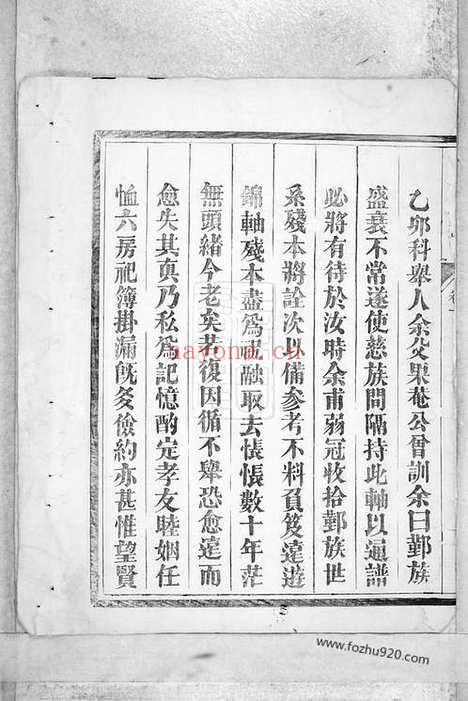 乙卯科舉人余父果菴公曾訓余曰鄞族
盛衰不常遂使慈族間隔持此軸以通譜
必將有待於汝時余甫弱冠收拾鄞族世
系殘本將詮次以備參考不料負笈遠遊
錦軸殘本盡為祝融取去悵悵數十年茫
無頭緒今老矣若復因循不舉恐愈遠而
愈失其真乃私為記憶酌定孝友睦姻任
恤六房祀簿掛漏既多儉約亦甚惟望賢
hayona.cn
www.fozhu920.com